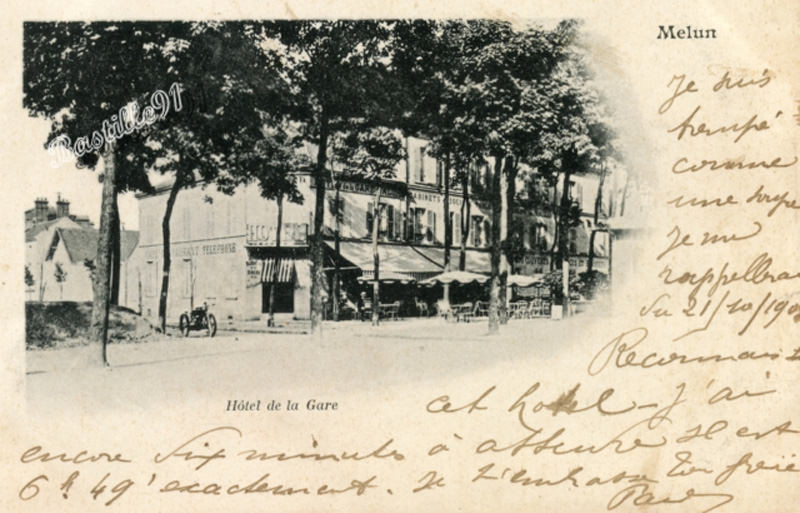 Melun
Bastille91
Je suis
trempé
comme
une soupe
Je me
rappellerai
du 21/10/190
TELEPHONE
CABINETS
Hôtel de la Gare
Reconnais
cet hotel - J'ai
encore six minutes à attendre Il est
6h 49' exactement. Je t'embrasse Ton frère